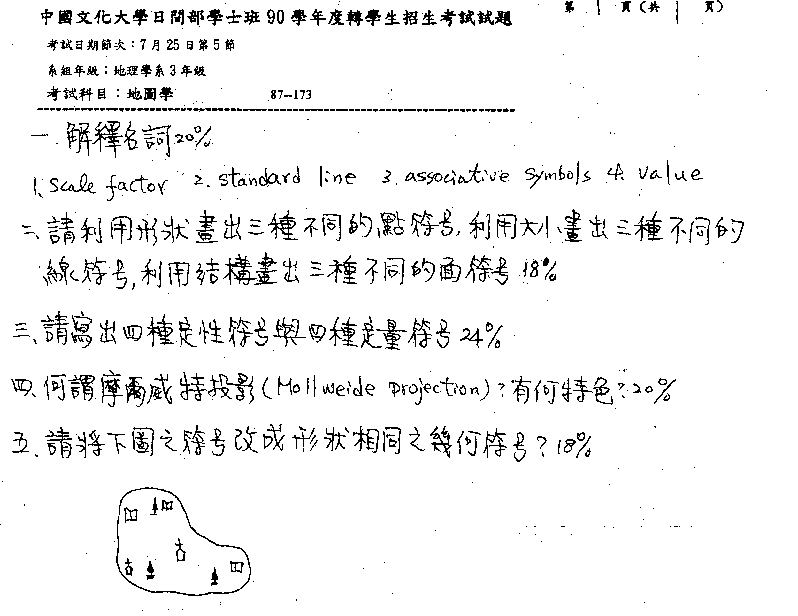 中國文化大學日間部學士班90學年度轉學生招生考試試題 第1頁(共1頁)
考試日期節次:7月25日第5節
系組年級:地理學系3年級
考試科目:地圖學 87-173
一.解釋名詞20%
1.Scale factor 2.standard line 3.associative symbols 4.value
二、請利用形狀畫出三種不同的點符号,利用大小畫出三種不同的
線符号,利用結構畫出三種不同的面符号18%
三、請寫出四種定性符号與四種定量符号24%
四、何謂摩爾威特投影(Mollweide projection)?有何特色?20%
五、請將下圖之符号改成形狀相同之幾何符号?18%